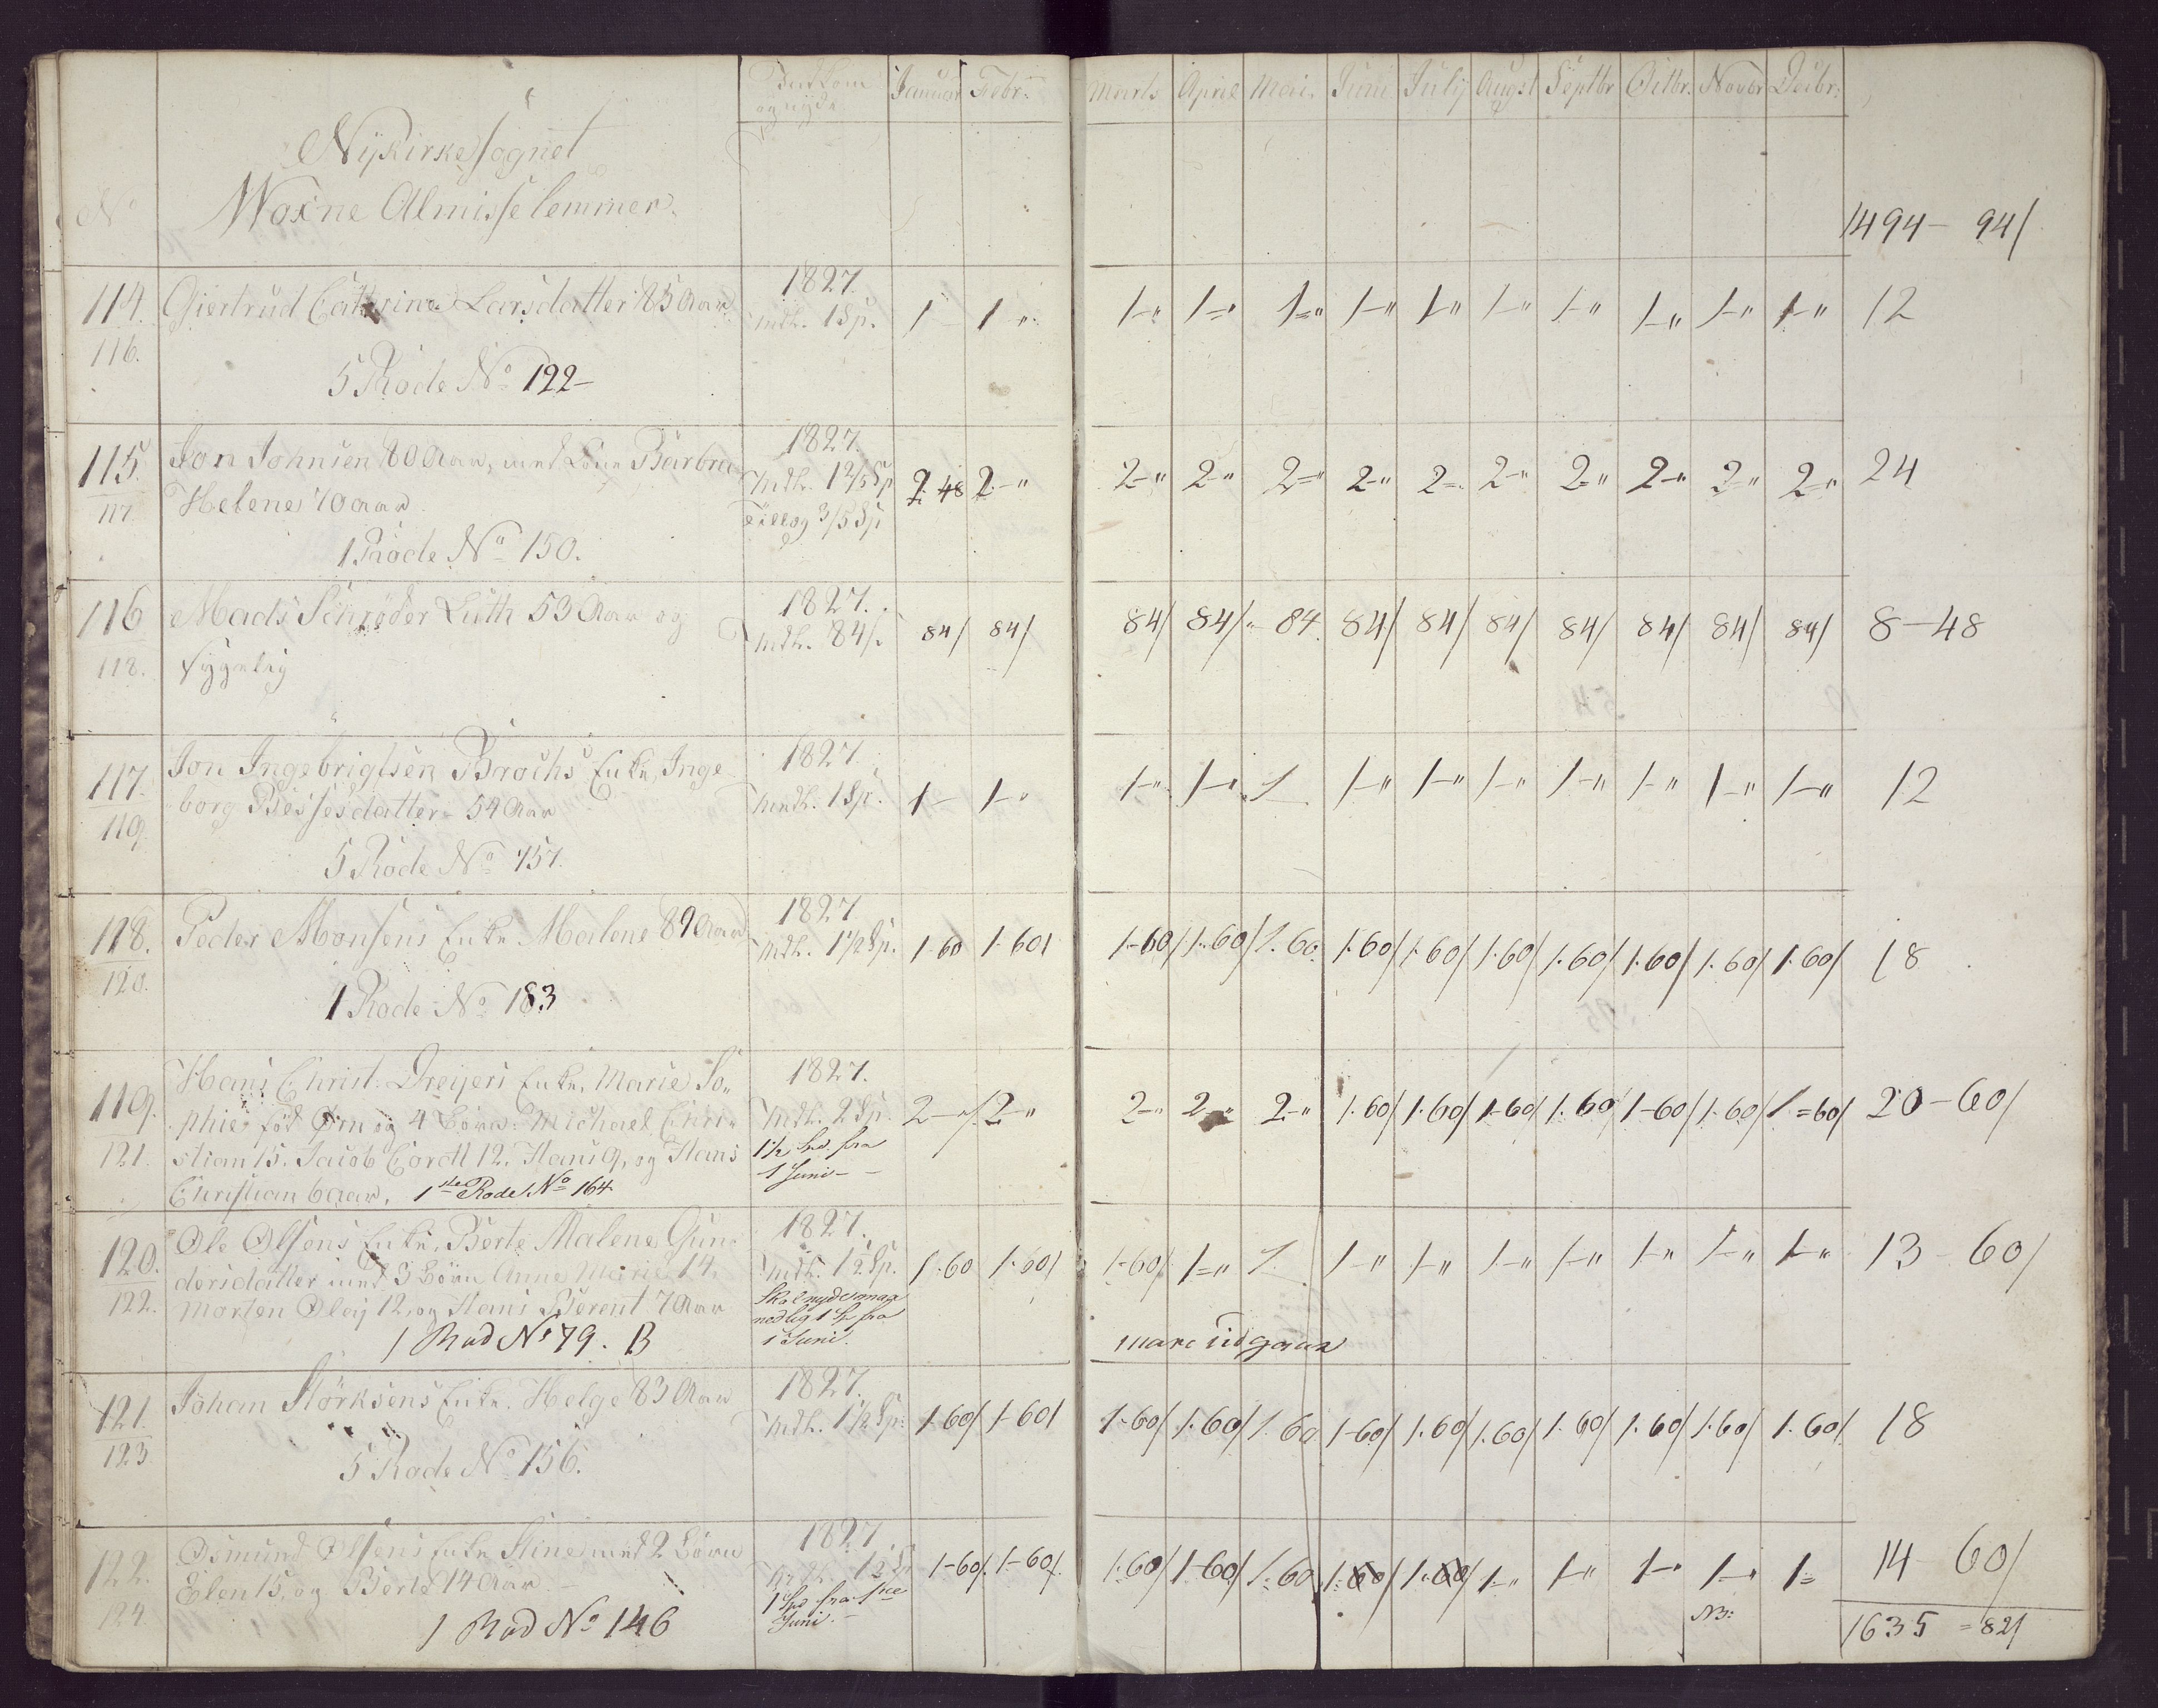 Nykirkesognet
Woxne Almisselemmer.
No
Januar Febr: Marts April Mai. Juni July Augst Septbr Octbr. Novbr Decbr:
og nyde
1494 - 94/
114. Giertrud Cathrine Larsdatter 85 Aar 1827.
116. mth. 1 Sp. 1 - 1 - " 1-" 1-" 1-" 1-" 1-" 1-" 1-" 1-" 1-" 1-" 12
5 Rode No 122-
115. Jon Johnsen 80 Aar, med Kone Barbra 1827.
117 Helene 70 aar. mth. 1 2/5 Sp 2 48 2 - " 2-" 2-" 2-" 2-" 2-" 2-" 2-" 2-" 2-" 2-" 24
Tillæg 3/5 Sp
1 Rode No 150.
116 Mads Schrøder Luth 53 Aar og 1827.
118. sygelig mth. 84/. 84/ 84/ 84/ 84/ 84 84/ 84/ 84/ 84/ 84/ 84/ 84/ 8-48
117. Jon Ingebrigtsen Brochs Enke, Inge 1827.
119. borg 54 Aar mth. 1 Sp. 1 - 1-" 1-" 1-" 1 1-" 1-" 1-" 1-" 1-" 1-" 1-" 12
5 Rode No 157.
118. Peder Monsens Enke Malene 89 Aar 1827
120. mth. 1 1/2 Sp. 1-60 1-60/ 1-60/ 1-60/ 1.60 1.60/ 1.60/ 1.60/ 1.60/ 1.60/ 1.60/ 1.60/ 18
1 Rode No 183
119. Hans Christ. Dreijers Enke, Marie So" 1827.
phie, fød Ørn og 4 Børn: Michael Chri" mth. 2 Sp. 2-"/ 2-" 2-" 2 " 2-" 1.60/ 1.60/ 1-60/ 1.60/ 1-60/ 1.60/ 1=60/ 20-60/
121. stian 15. Jacob 12. Hans 9, og Hans 1 1/2 Spd fra
Christian 6 aar. 1ste Rode No 164 1 Juni -
120. Ole Olsens Enke, Berte Malene Gun" 1827.
dersdatter med 3 Børn Anne Marie 14. mth. 1 1/2 Sp. 1.60 1.60/ 1-60/ 1=" 1. 1-" 1-" 1-" 1-" 1-" 1-" 1-" 13-60/
122. Morten Olaj 12, og Hans Berent 7 Aar Skal nyde maa
nedlig 1 Sp fra
1 Rod No 79. B 1 Juni.
121. Johan Störksens Enke, Helge 83 Aar 1827.
123. mth. 1 1/2 Sp. 1.60/ 1-60/ 1-60/ 1.60/ 1.60 1-60/ 1.60/ 1.60/ 1.60/ 1.60/ 1.60/ 1.60/ 18
5 Rode No 156.
122. Osmund Olsens Enke Stine med 2 Børn 1827
Elen 15, og Berte 14 Aar mth. 1 1/2 Sp 1-60/. 1-60/. 1.60/ 1-60/ 1.60 1.60/ 1.60/ 1-" 1-" 1-" 1-" 1= 14 60/
124. 1 Spd fra 1ste
Juni. - NB:
1 Rod No 146
1635 = 82/